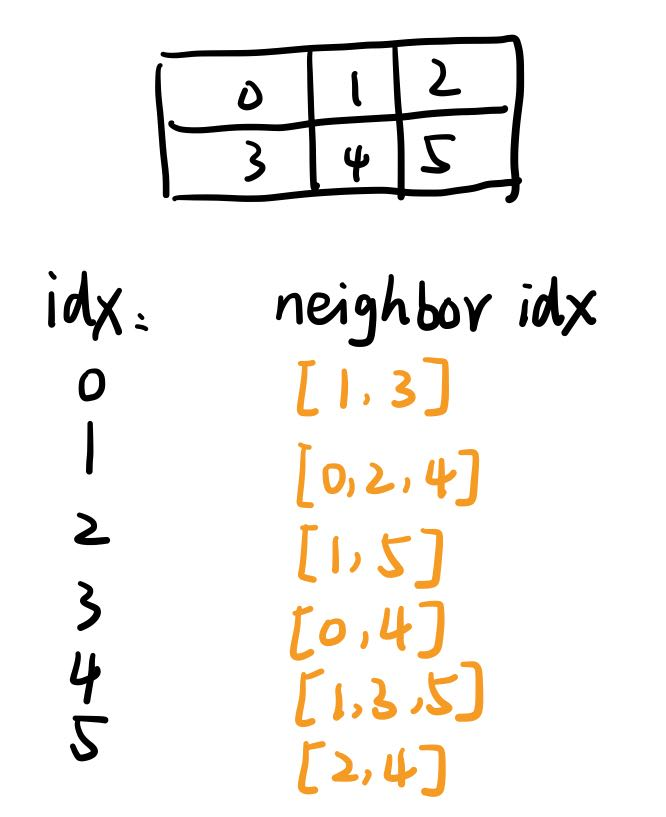 0 1 2
3 4 5
idx: neighbor idx
0 [1,3]
1 [0,2,4]
2 [1,5]
3 [0,4]
4 [1,3,5]
5 [2,4]